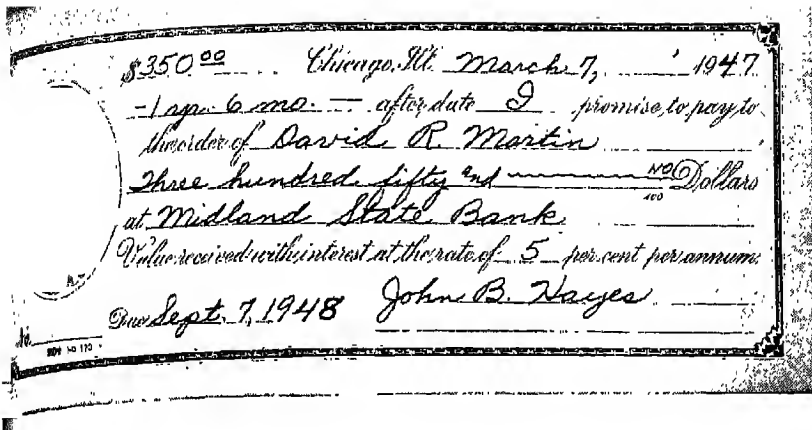 $350.00 Chicago, Ill. March 7, 1947
-1 yr. 6 mo. — after date I promise to pay to
the order of David R. Martin
Three hundred fifty and NO/100 Dollars
at Midland State Bank
Value received with interest at the rate of 5 per cent per annum.
Due Sept. 7, 1948 John B. Hayes